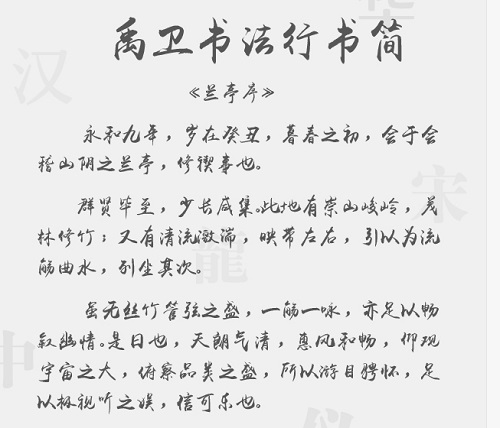 禹卫书法行书简
《兰亭序》
永和九年，岁在癸丑，暮春之初，会于会
稽山阴之兰亭，修禊事也。
群贤毕至，少长咸集。此地有崇山峻岭，茂
林修竹；又有清流激湍，映带左右，引以为流
觞曲水，列坐其次。
虽无丝竹管弦之盛，一觞一咏，亦足以畅
叙幽情。是日也，天朗气清，惠风和畅，仰观
宇宙之大，俯察品类之盛，所以游目骋怀，足
以极视听之娱，信可乐也。
汉
华
宋
龍
中